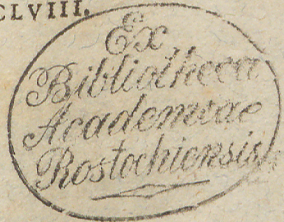 CLVIII.
Ex
Bibliotheca
Academiae
Rostochiensis